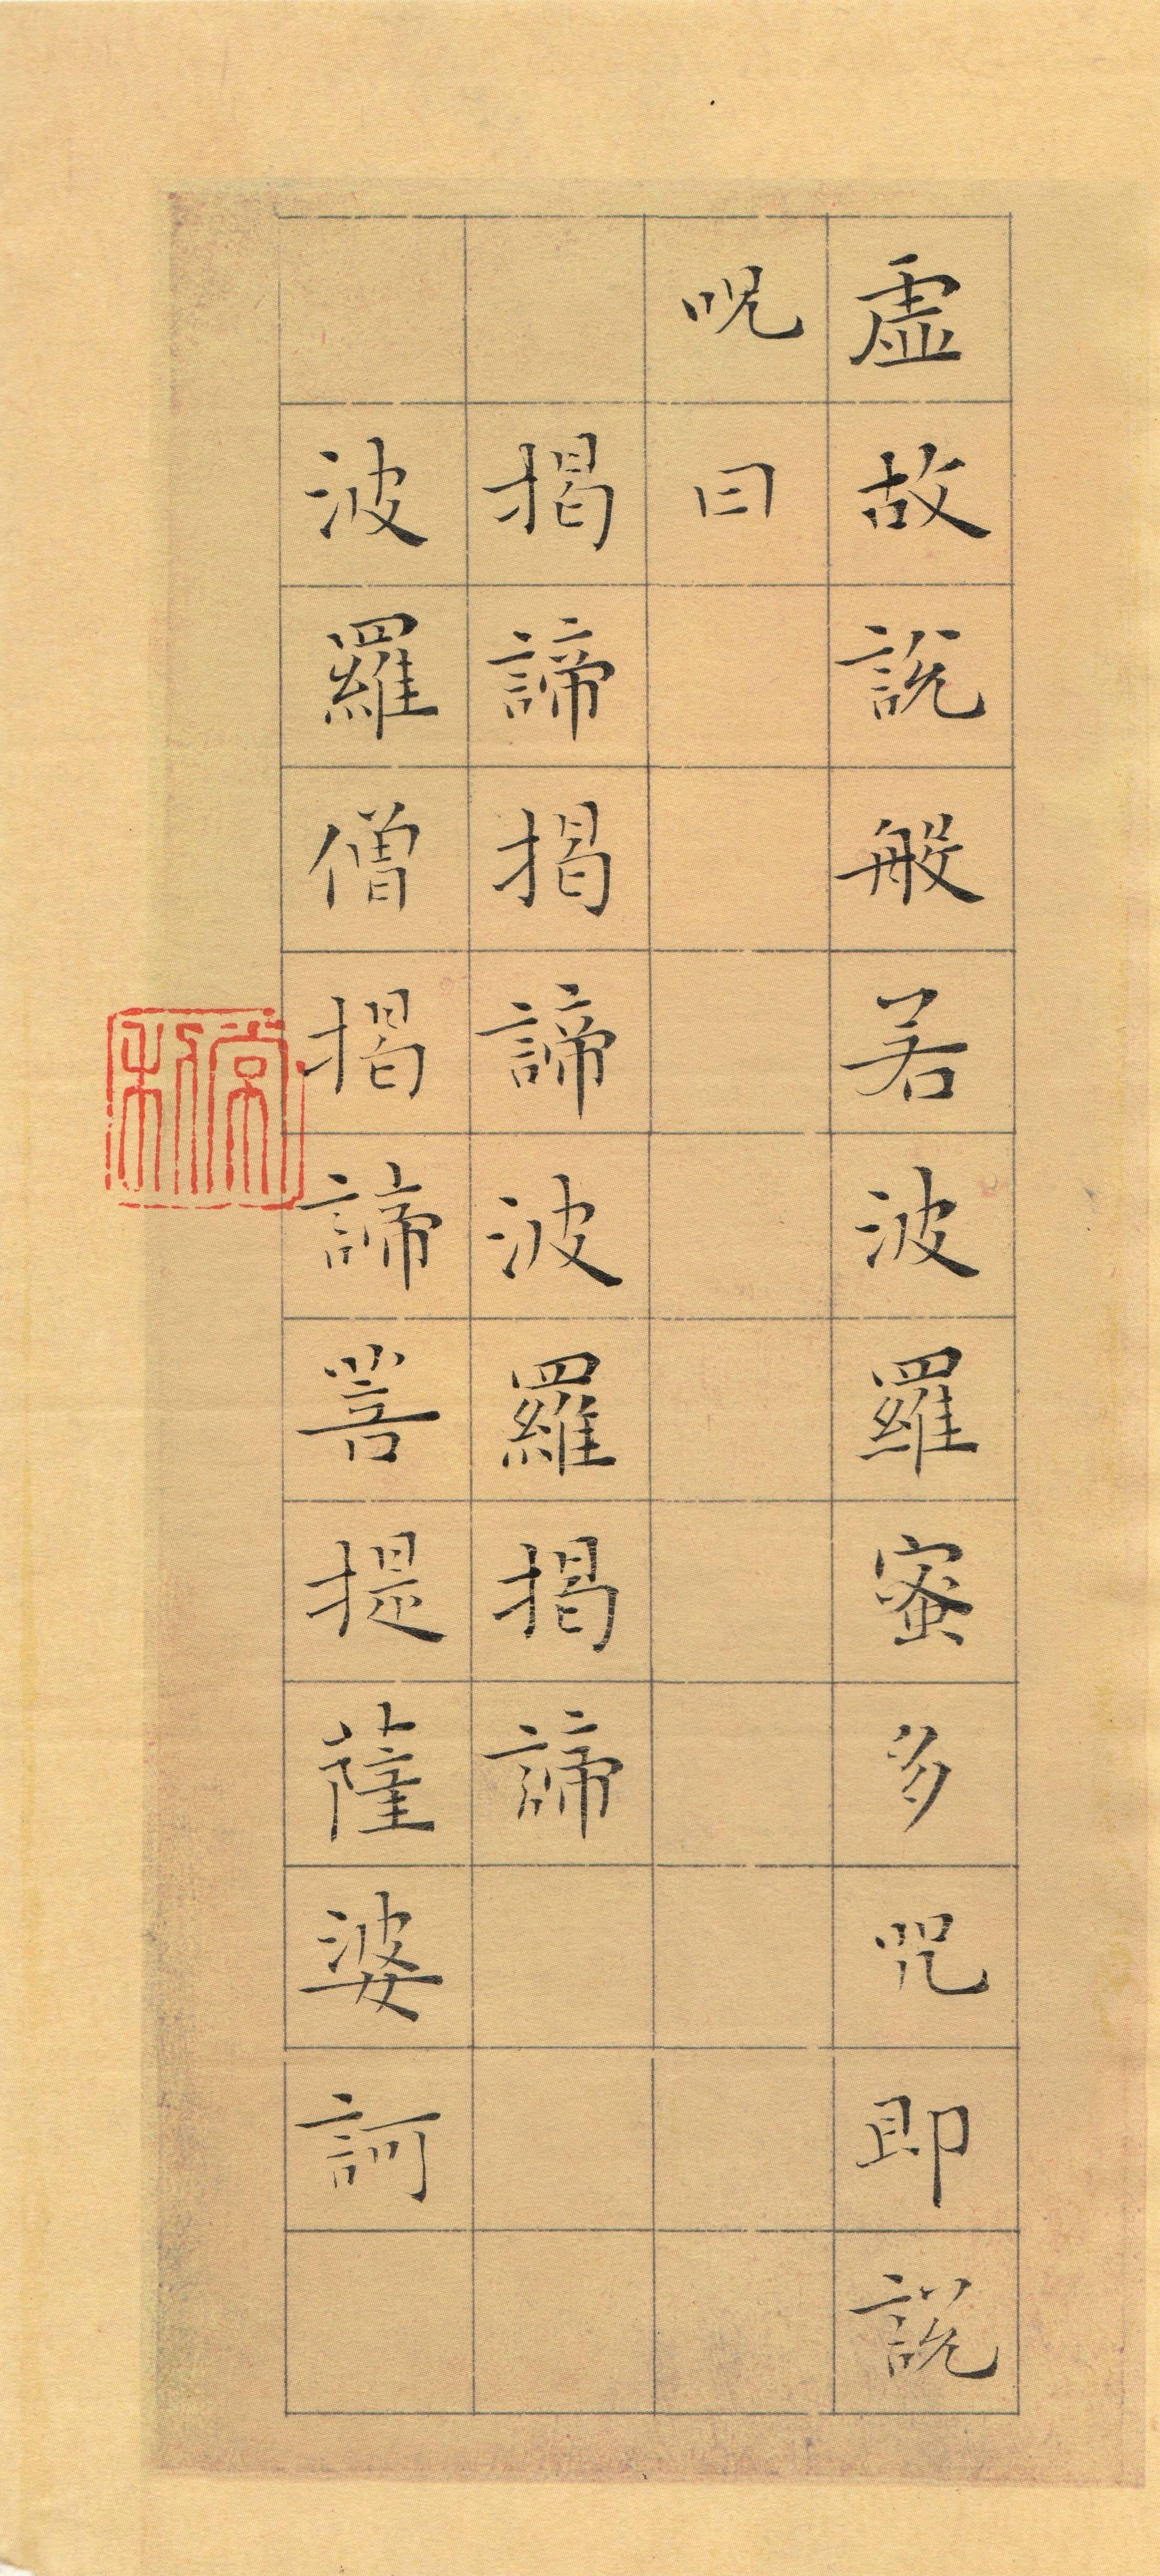 虛故說般若波羅蜜多咒即說
呪曰
揭諦揭諦波羅揭諦
波羅僧揭諦菩提薩婆訶